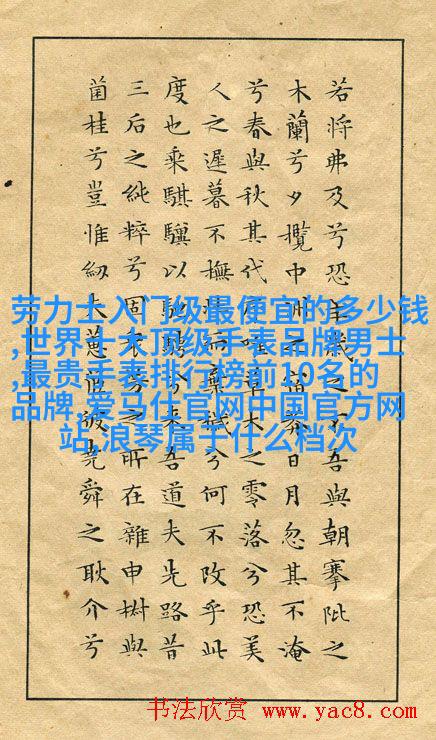 若將弗及兮恐年歲之不吾與朝搴阰之
木蘭兮夕攬中洲之宿莽日月忽其不淹
兮春與秋其代序唯草木之零落兮恐美
人之遲暮不撫壯而棄穢兮何不改乎此
度也乘騏驥以馳騁兮來吾道夫先路昔
三后之純粹兮固衆芳之所在雜申椒與
菌桂兮豈惟紉夫蕙茝彼堯舜之耿介兮
劳力士入门级最便宜的多少钱
,世界十大顶级手表品牌男士
,最贵手表排行榜前10名的
品牌,爱马仕官网中国官方网
站,浪琴属于什么档次
书法欣赏 www.yac8.com